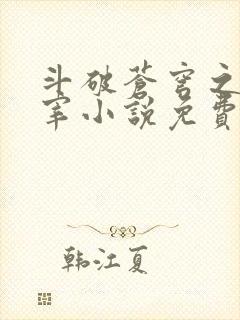 斗破蒼穹之
宰小說免費
韩江夏